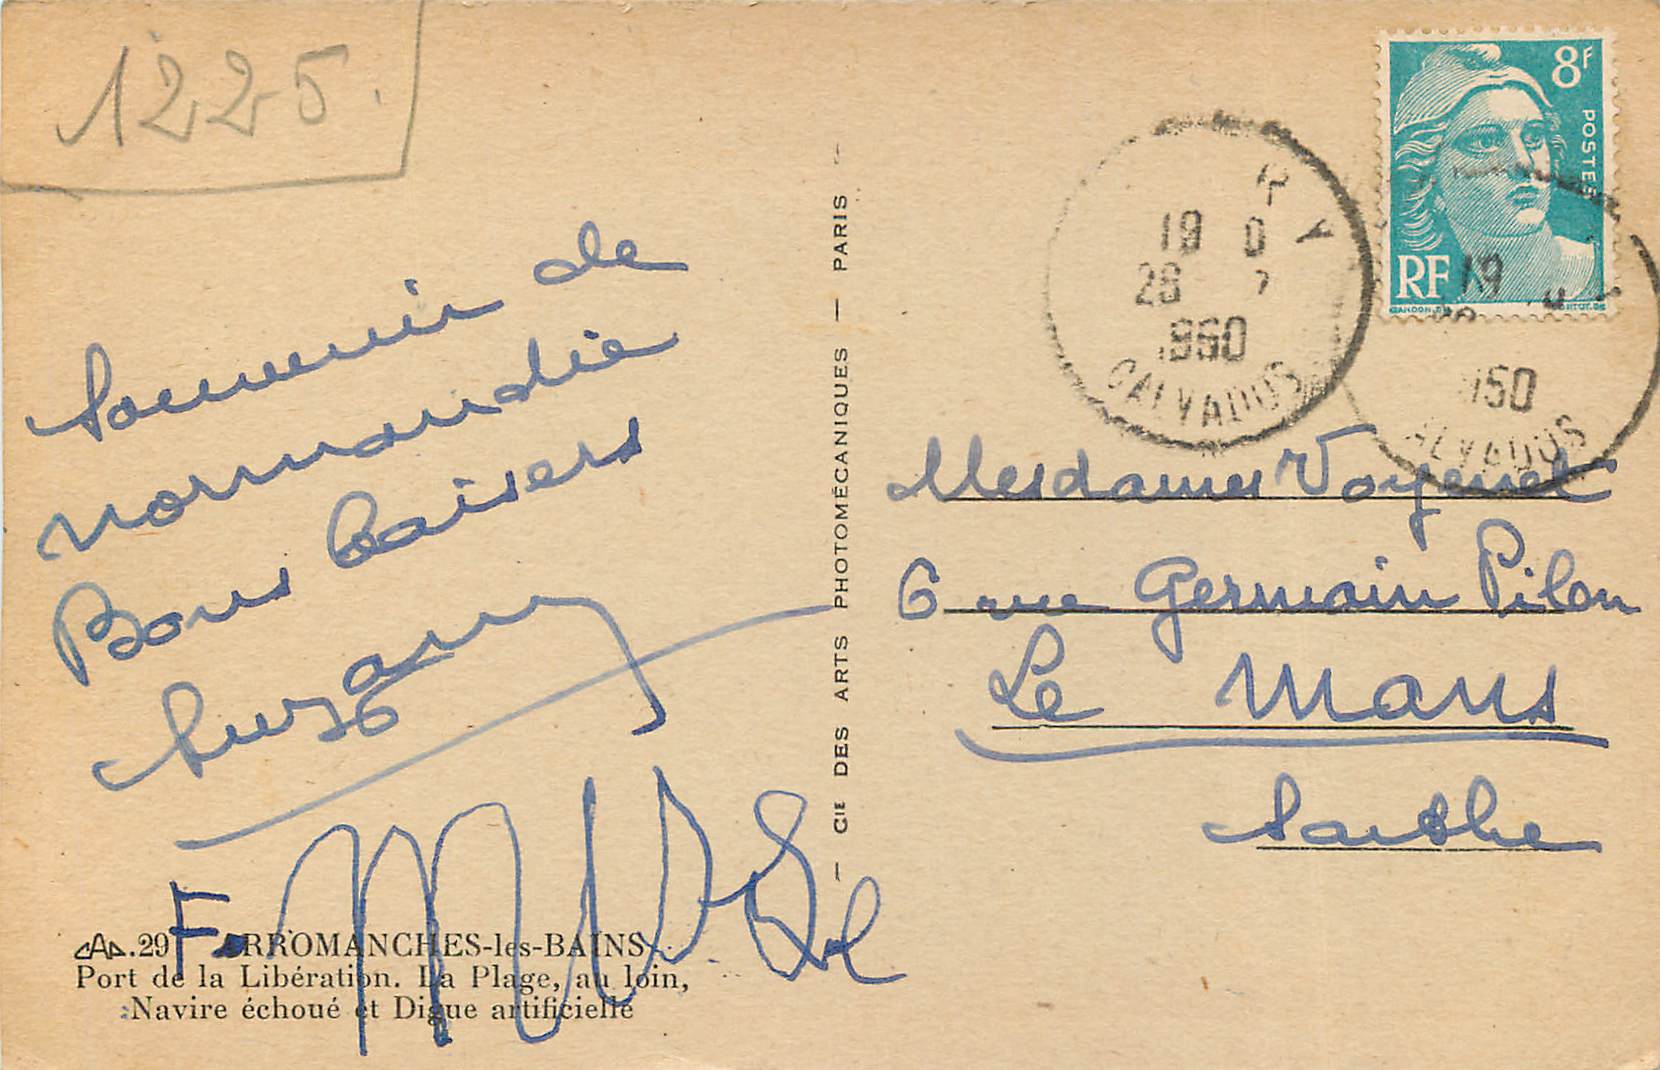 1225.
Souvenir de
normandie
Bons baisers
Suzany
F.
CAP.29 ARROMANCHES-les-BAINS
Port de la Libération. La Plage, au loin,
Navire échoué et Digue artificielle
— CIE DES ARTS PHOTOMÉCANIQUES — PARIS —
8F
POSTES
RF
RY
19 0
28 7
1950
CALVADOS
19
1950
CALVADOS
Mesdames Voyenet
6 rue Germain Pilon
Le Mans
Sarthe